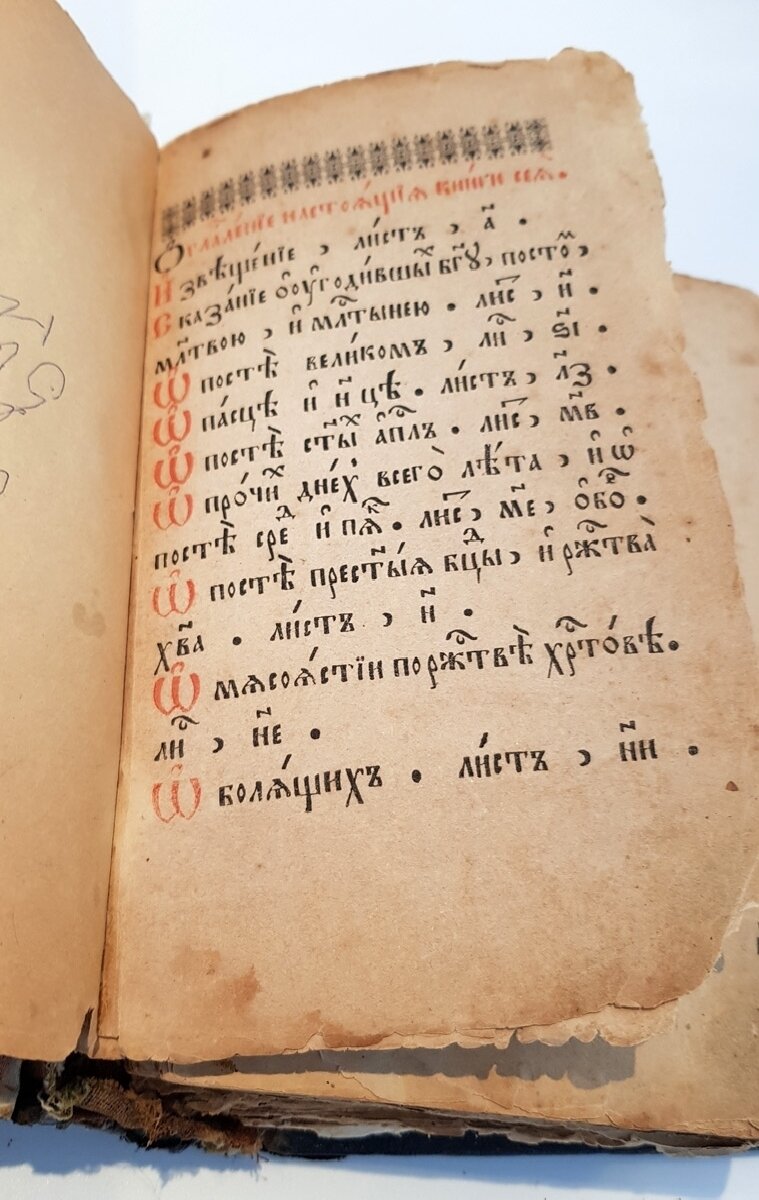 Оглавле́нїе настоѧ́щїѧ кни́ги сеѧ̀.
И҆звѣще́нїе , ли́стъ , а҃ .
Сказа́нїе ѡ҆ оу҆годи́вшыⷯ бг҃ꙋ, постоⷨ ,
мл҃твою , и҆ млⷭ҇тынею . лиⷭ҇ , и҃ .
Ѿ постѣ̀ вели́комъ , лиⷭ҇ , ѕ҃і .
Ѿ па́сцѣ и҆ н҃цѣ . ли́стъ , л҃з .
Ѿ постѣ̀ ст҃ыⷯ а҆пⷭ҇лъ . лиⷭ҇ , м҃в .
Ѿ про́чиⷯ дне́хъ всегѡ̀ лѣ́та , и҆ ѡ҆
постѣ̀ среⷣ и҆ пѧⷦ҇ . лиⷭ҇ , м҃е , ѻ҆боⷬ҇ .
Ѿ постѣ̀ прест҃ы́ѧ бцⷣы , и҆ ржⷭ҇тва̀
хв҃а . ли́стъ , н҃ .
Ѿ мѧсоѧ́стїи по ржⷭ҇твѣ̀ хрⷭ҇то́вѣ .
лиⷭ҇ , н҃е .
Ѿ болѧ́щихъ . ли́стъ , н҃и .